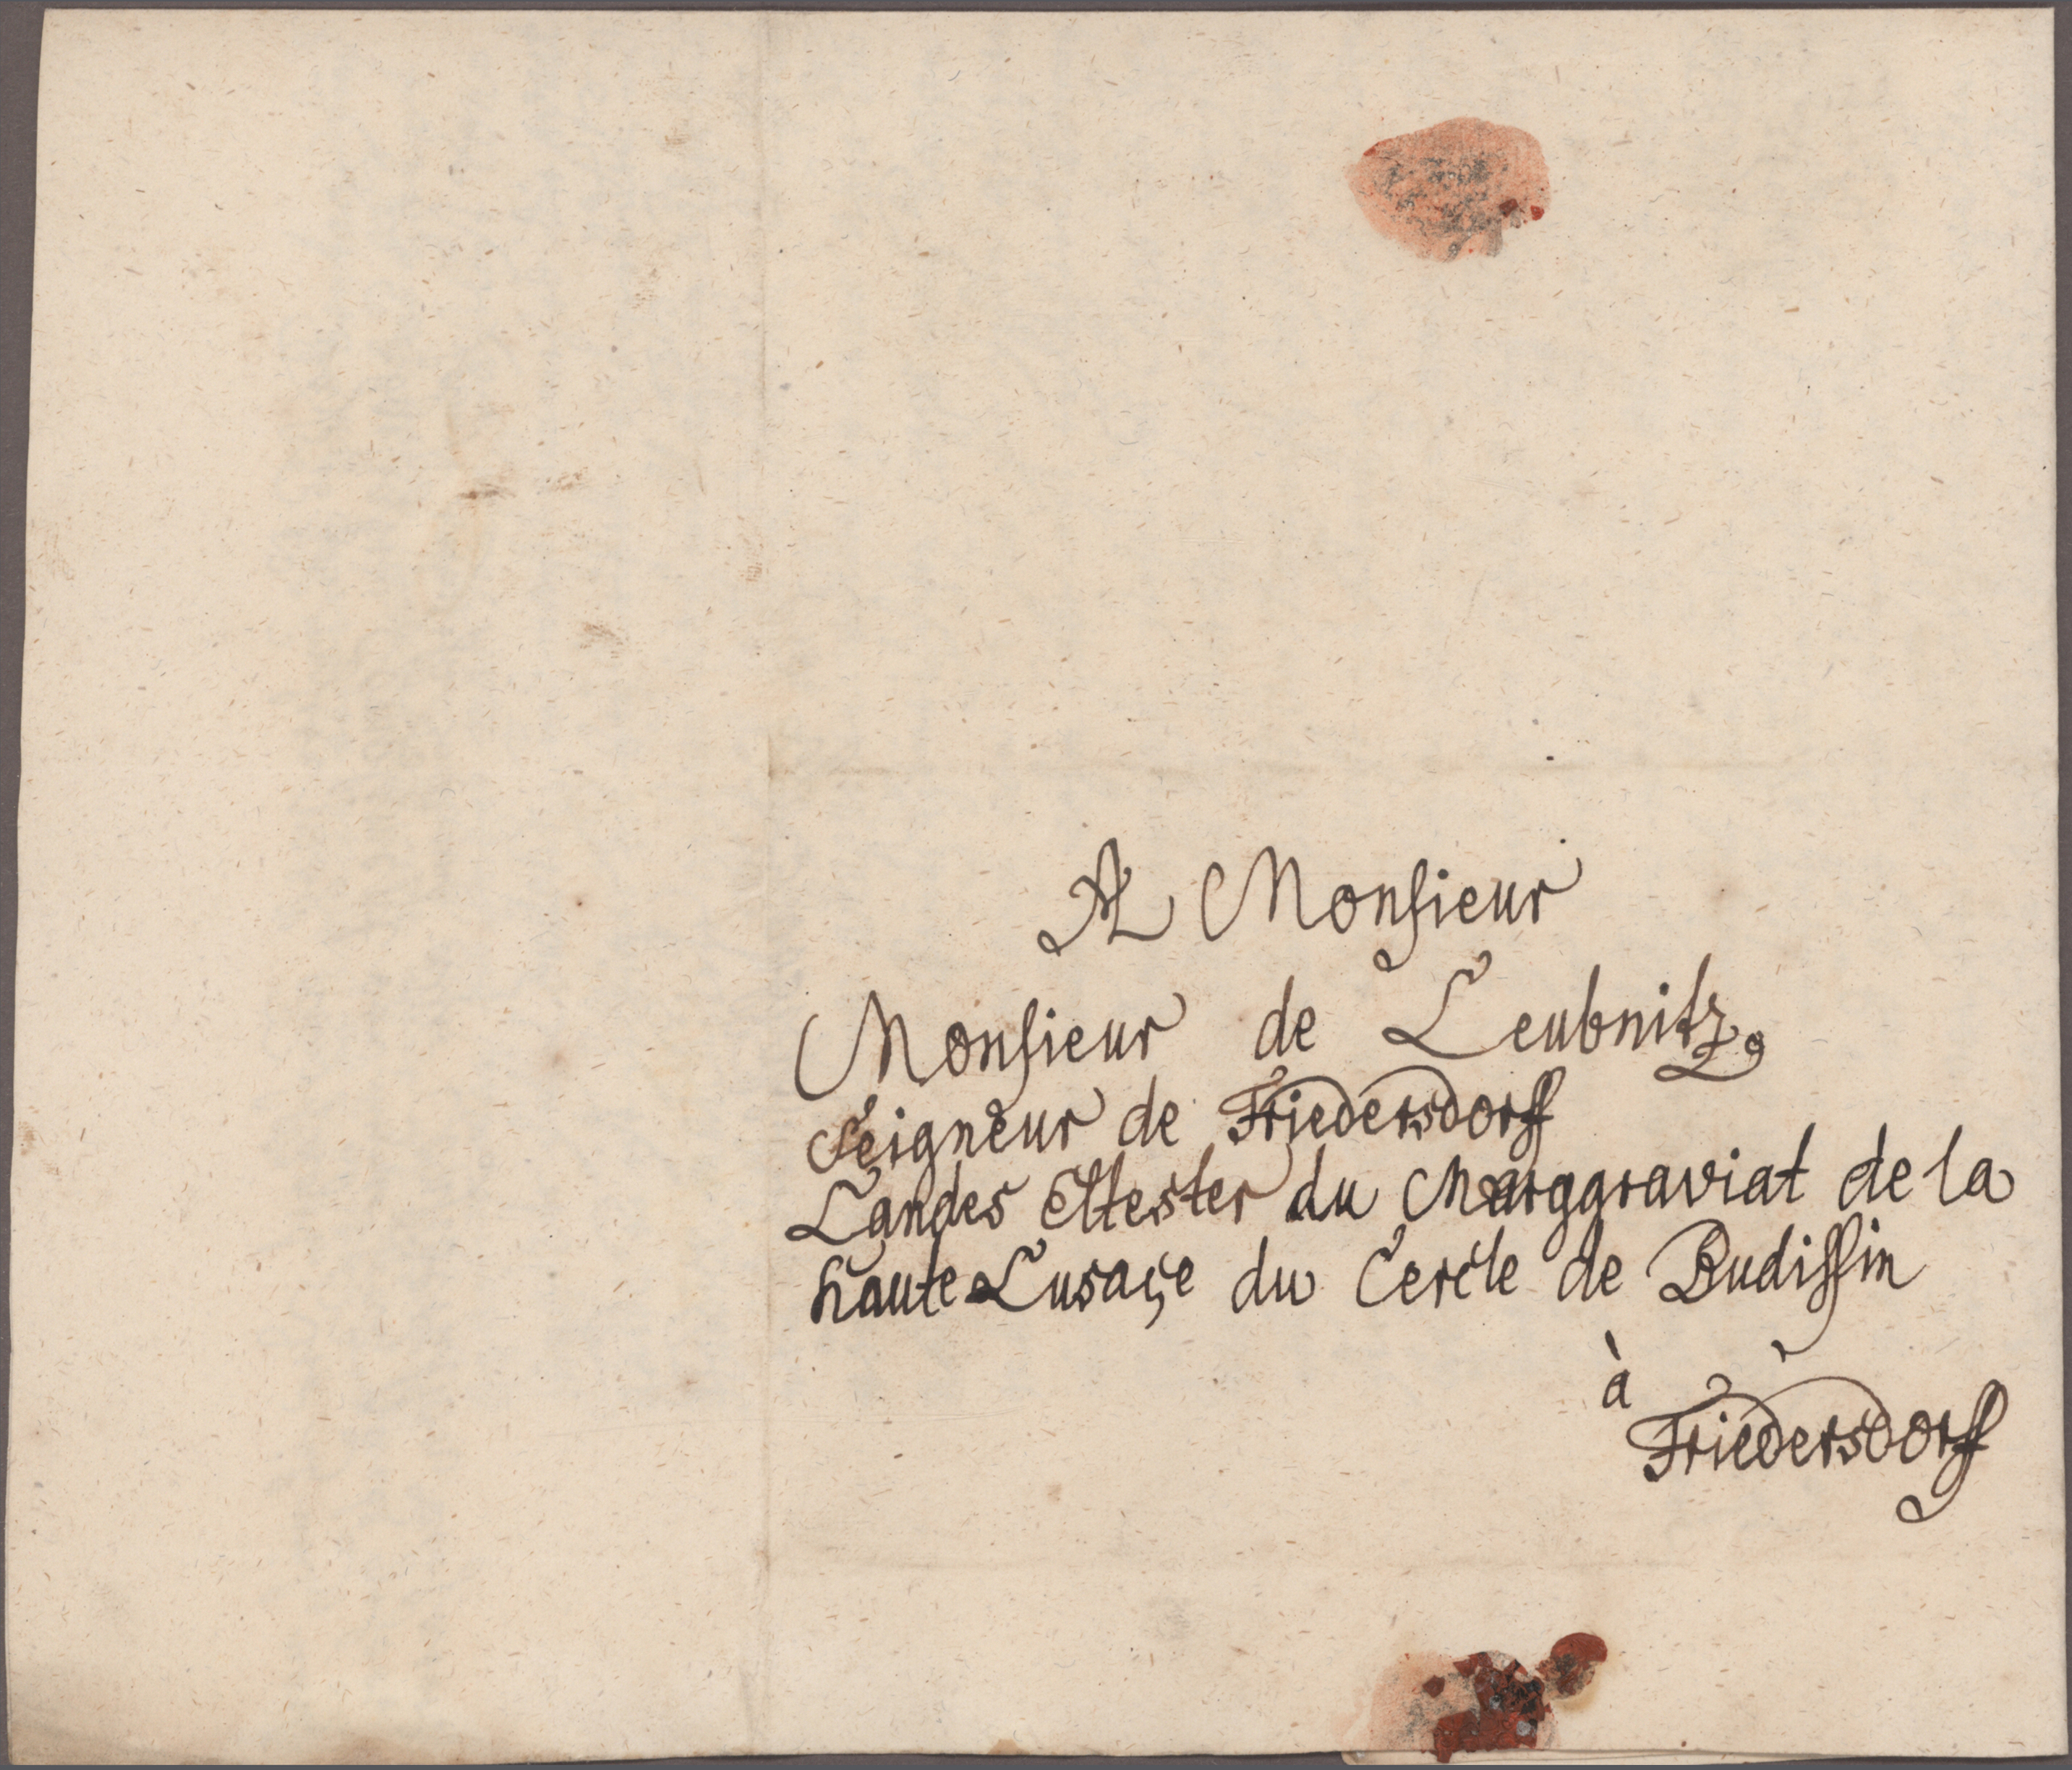 A Monsieur
Monsieur de Leubnitz,
Seigneur de Friedersdorff
Landes Eltester du Marggraviat de la
haute Lusaçe du Cercle de Budissin
à
Friedersdorff